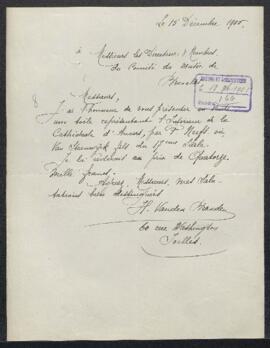 Le 15 Décembre 1905.
à
Messieurs les Directeur & Membres
du Comité du Musée de
Messieurs,
J'ai l'honneur de vous présenter
une toile représentant l'Intérieur de la
Cathédrale d'Anvers, par P. Neefs ou
Van Steenwijck fils du 17me Siècle
je la au prix de Quatorze
Mille francs.
Agréez, Messieurs, mes Salu-
tations bien distinguées
H. Vanden
60 rue Washington
Ixelles